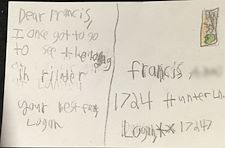 Dear Francis,
I once got to go
to see the
in
your best
Logan
francis,
1724 Hunter Ln.
Logan xx 17247